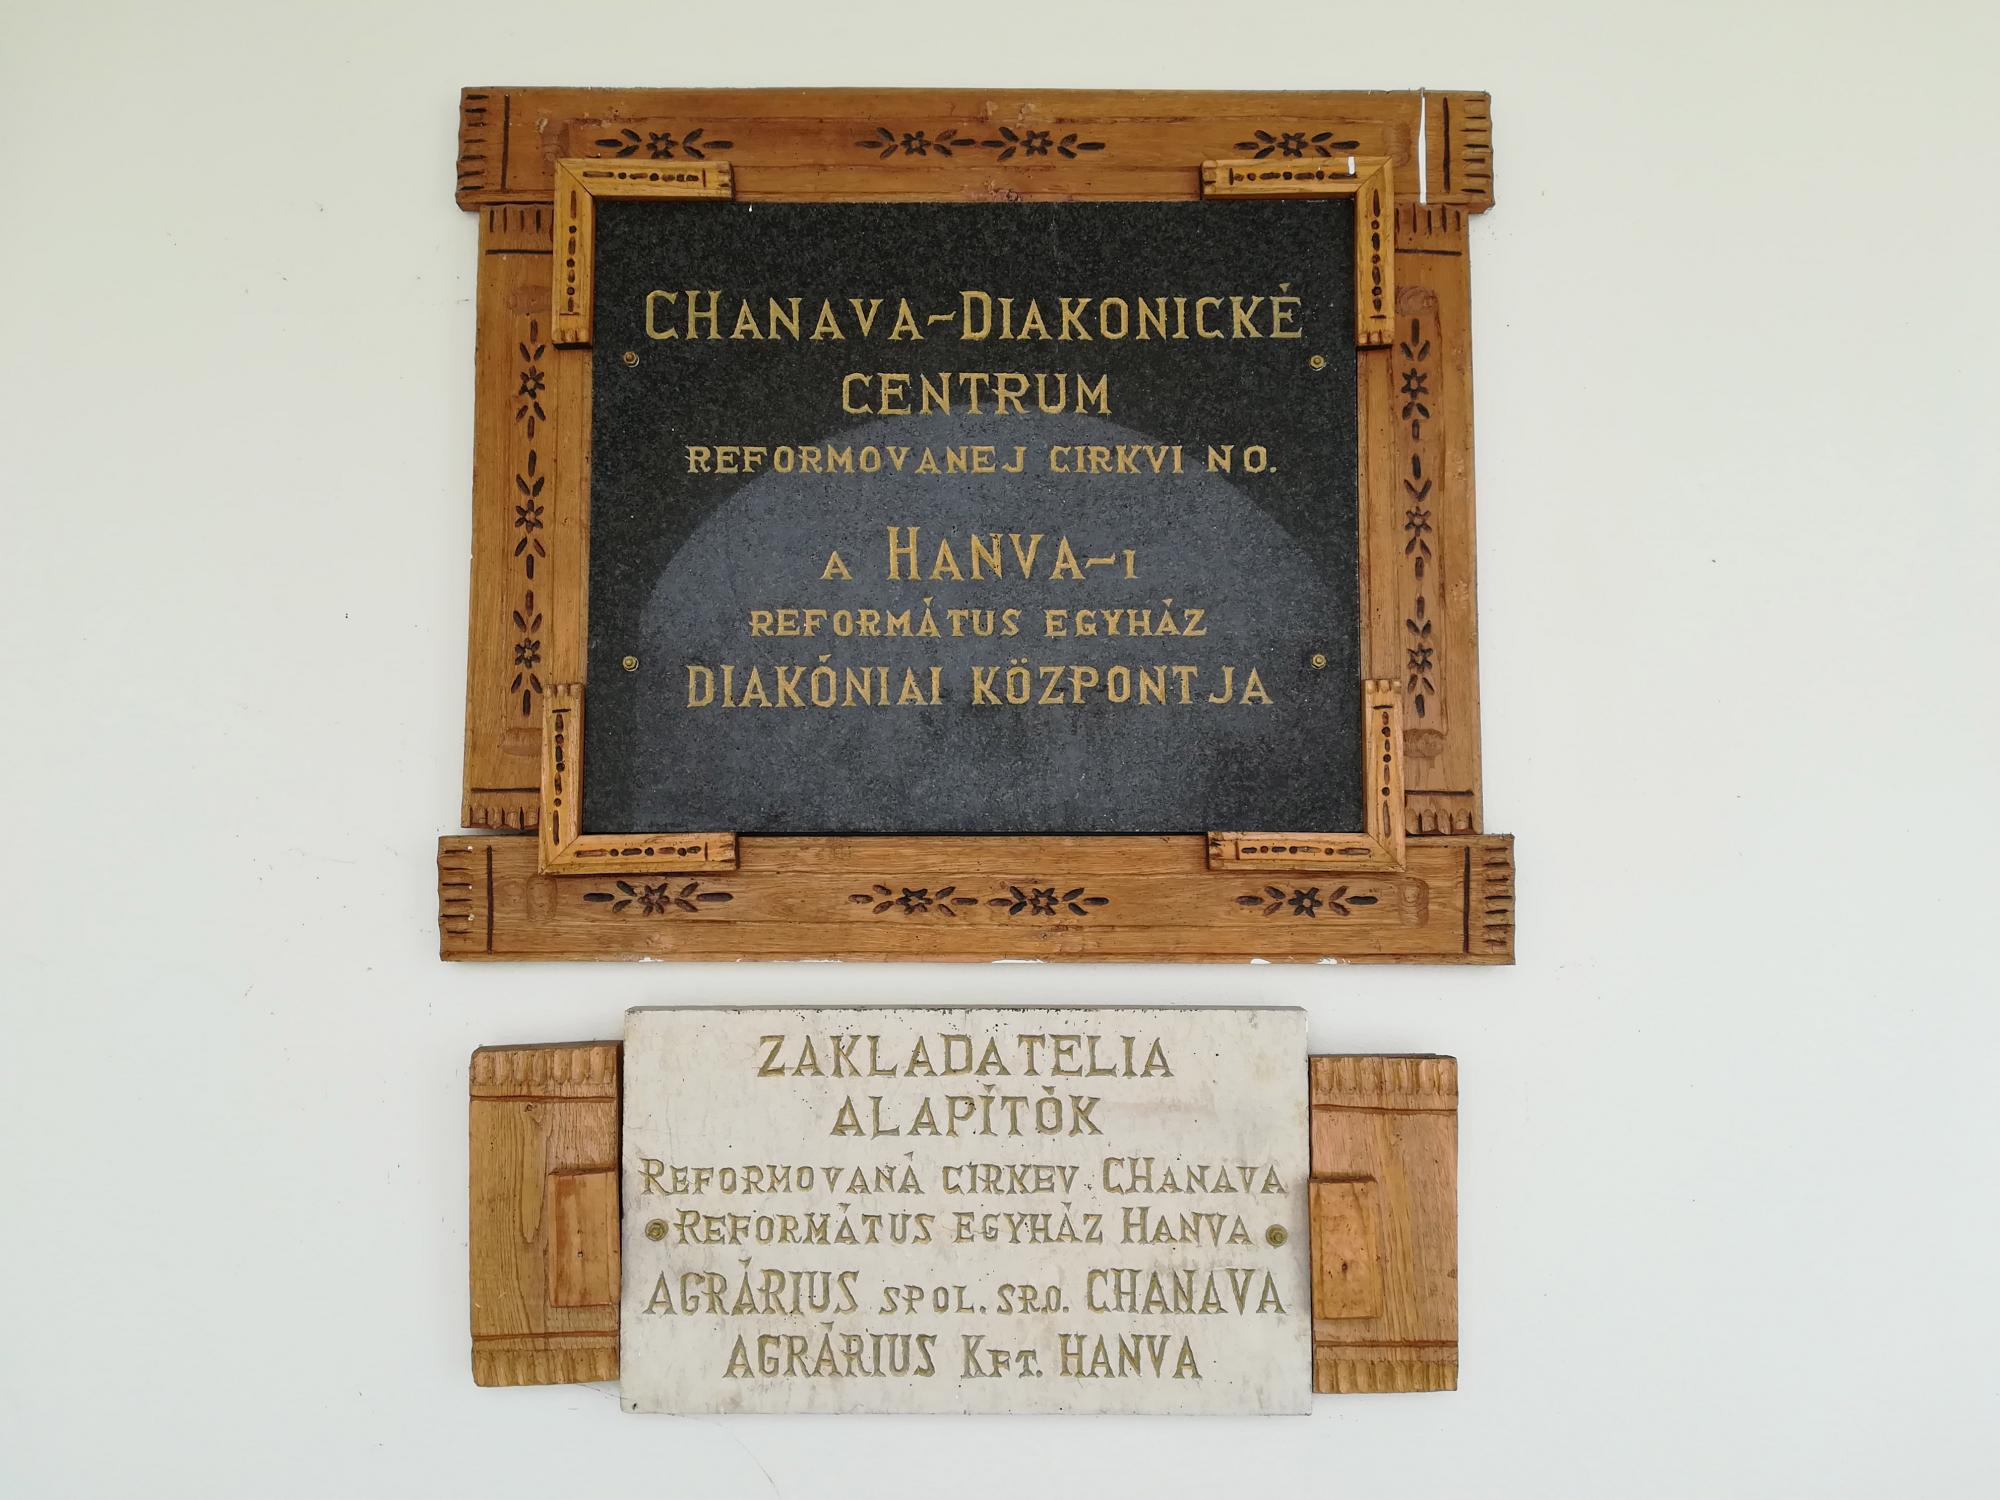 CHANAVA-DIAKONICKÉ
CENTRUM
REFORMOVANEJ CIRKVI NO.
A HANVA-I
REFORMÁTUS EGYHÁZ
DIAKÓNIAI KÖZPONTJA
ZAKLADATELIA
ALAPÍTÓK
REFORMOVANÁ CIRKEV CHANAVA
REFORMÁTUS EGYHÁZ HANVA
AGRÁRIUS SPOL. SR.O. CHANAVA
AGRÁRIUS KFT. HANVA